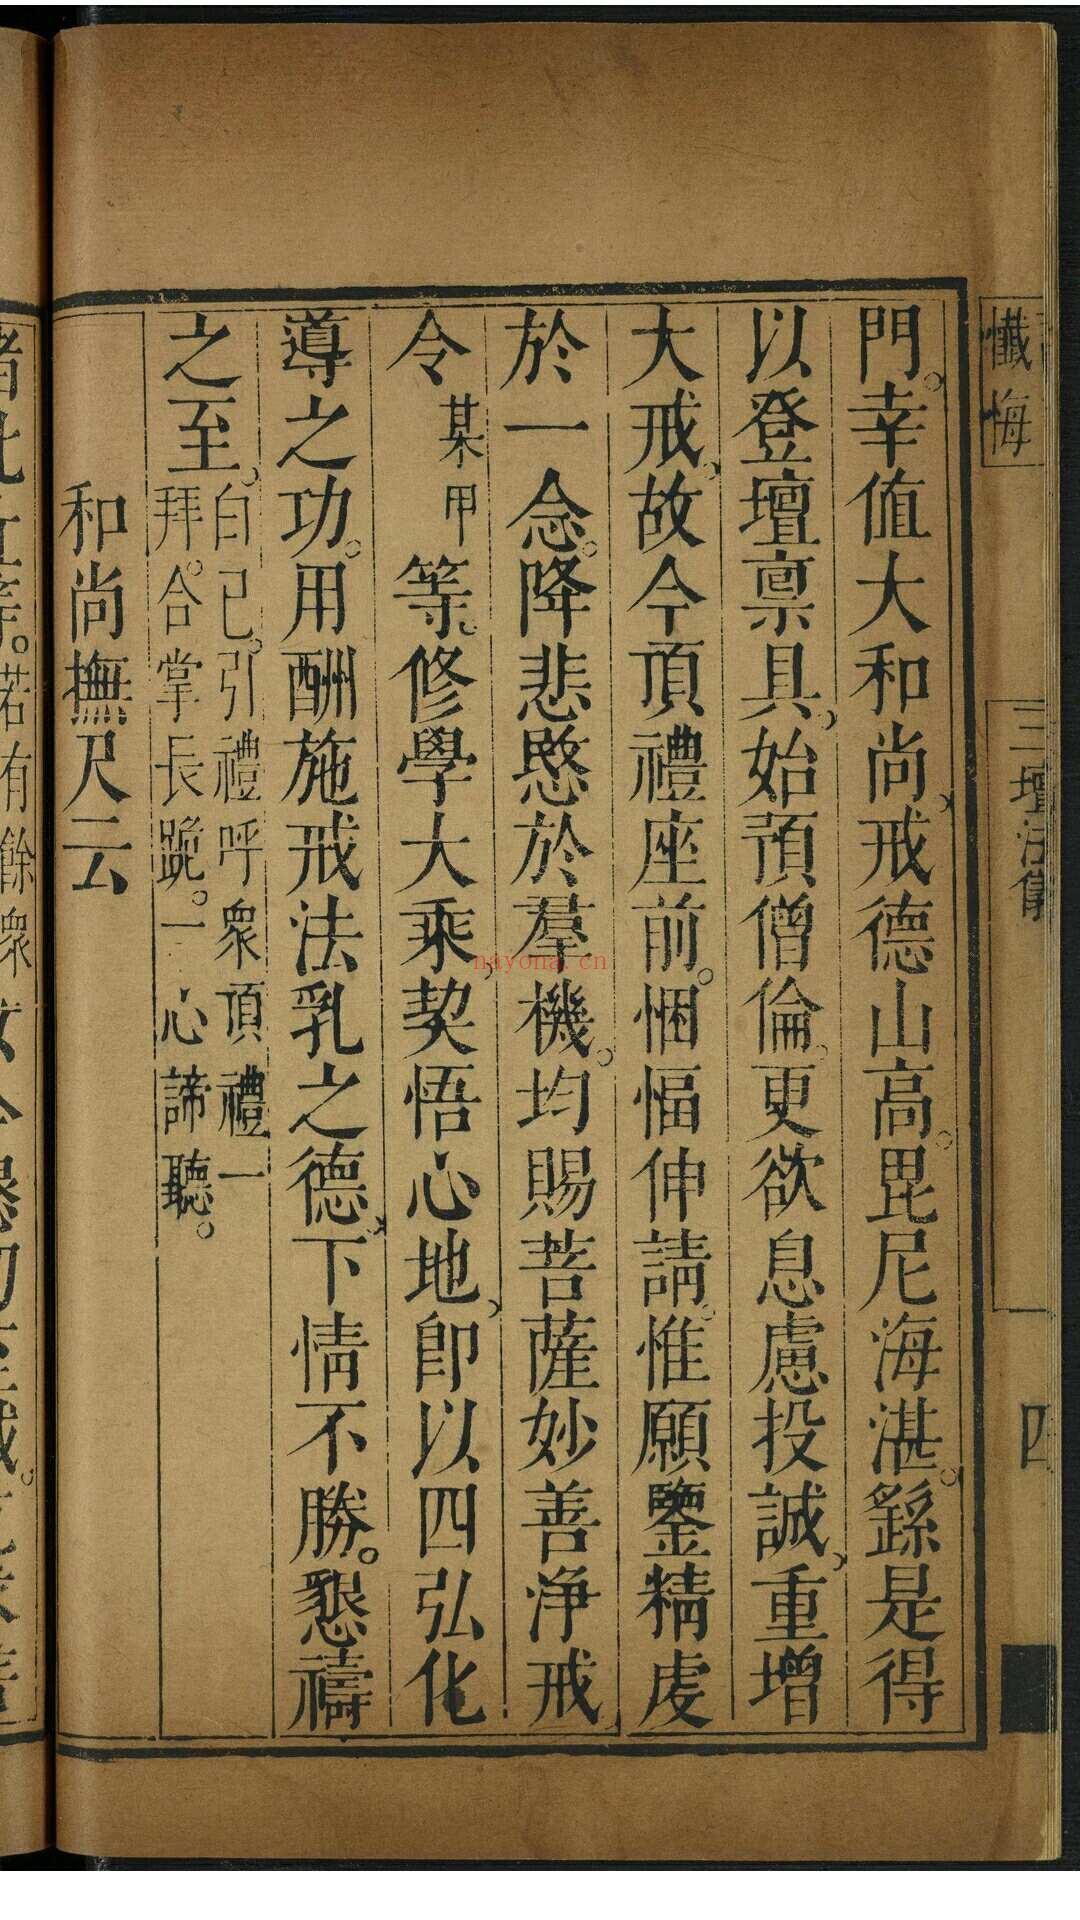 懺悔
三壇法儀
四
門。幸值大和尚、戒德山高。毘尼海湛。繇是得
以登壇稟具、始預僧倫。更欲息慮投誠、重增
大戒、故今頂禮座前。悃愊伸請。惟願鑒精虔
於一念。降悲愍於羣機。均賜菩薩妙善淨戒
令某甲等。修學大乘、契悟心地、即以四弘化
導之功。用酬施戒法乳之德、下情不勝。懇禱
之至。白已。引禮呼眾頂禮一
拜。合掌長跪。一心諦聽。
和尚撫尺云
若有餘眾
nayona.cn